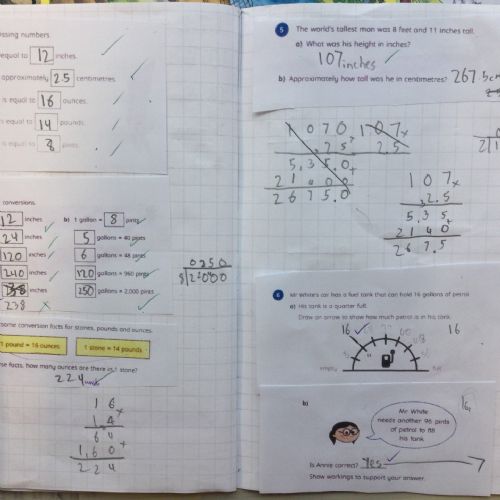 ssing numbers.
equal to 12 inches.
approximately 2.5 centimetres
is equal to 16 ounces.
is equal to 14 pounds.
is equal to 8 pints
conversions.
12 inches
24 inches
120 inches
240 inches
inches
238
b) 1 gallon = 8 pints
5 gallons = 40 pints
6 gallons = 48 pints
120 gallons = 960 pints
250 gallons = 2,000 pints
0250
8 2000
some conversion facts for stones, pounds and ounces.
1 pound = 16 ounces
1 stone = 14 pounds
se facts, how many ounces are there in 1 stone?
224
16
14
64
1,60
224
5 The world's tallest man was 8 feet and 11 inches tall.
a) What was his height in inches?
107 inches
b) Approximately how tall was he in centimetres? 267.5cm
1070
.25
5,35.0
21400
2675.0
107x
2.5
107x
2.5
535
2140
267.5
6 Mr White's car has a fuel tank that can hold 16 gallons of petrol.
a) His tank is a quarter full.
Draw an arrow to show how much petrol is in his tank.
16
16
empty
full
b)
Mr White
needs another 96 pints
of petrol to fill
his tank.
Is Annie correct? Yes
Show workings to support your answer.